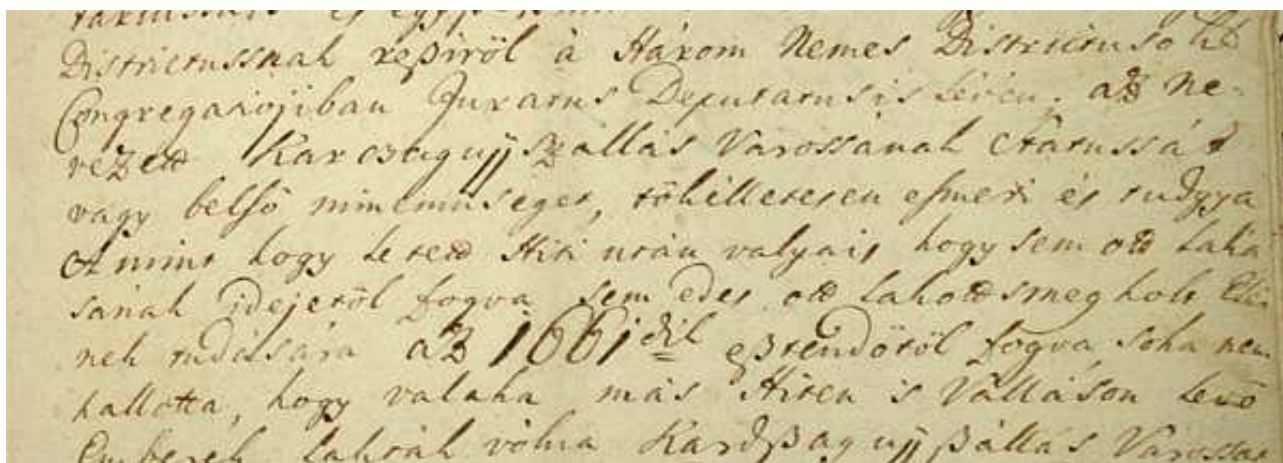 Districtussnak reßiröl à Három Nemes Districtusok
Congregatiojiban Juratus Deputatus is lévén, azt Ne-
vezett Karczagujjszallás Várossának Statussát
vagy belső mimémüséget, tökélletesen esmeri és tudgya
A mint hogy letett Hiti után vallyais hogy sem ott laká
sának idejetöl fogva sem edes ott lakott s megholt
nek tudására az 1661dik esztendötöl fogva soha nem
hallotta, hogy valaha más Hiten is Valláson levö
Emberek laktak vólna Kardßagujj ßállás Várossa